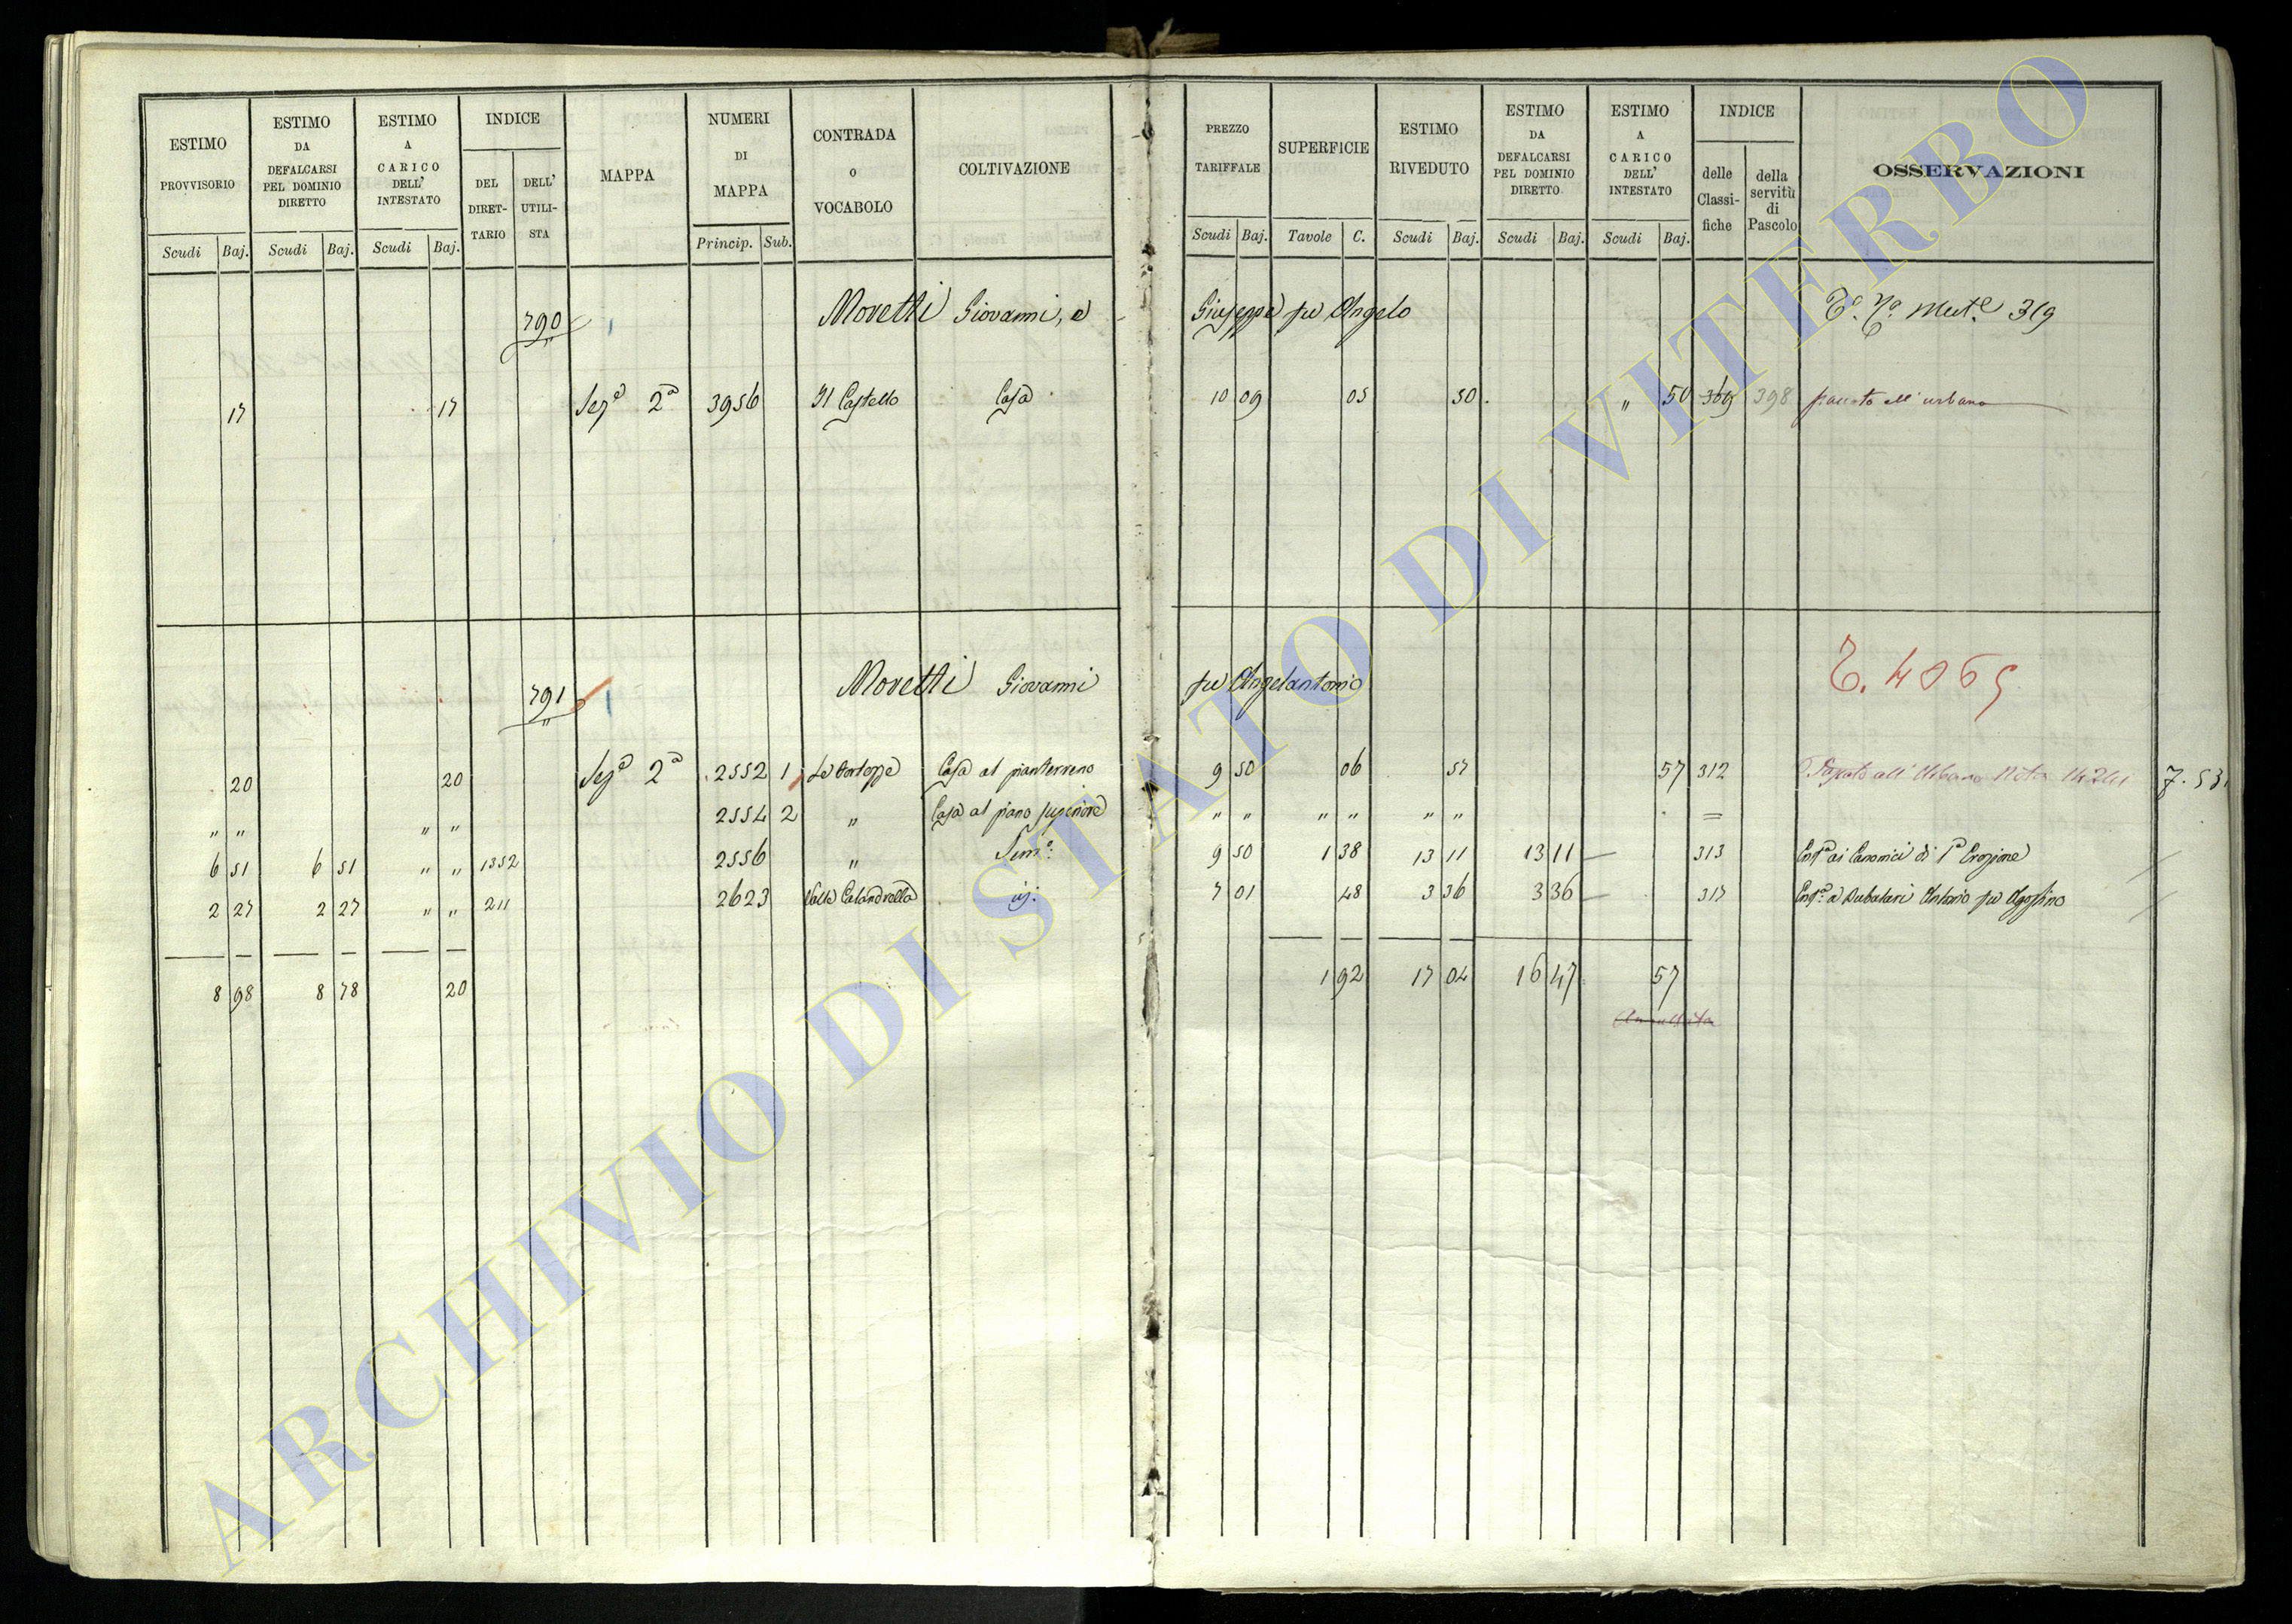 ESTIMO PROVVISORIO | ESTIMO DA DEFALCARSI PEL DOMINIO DIRETTO | ESTIMO A CARICO DELL' INTESTATO | INDICE | MAPPA | NUMERI DI MAPPA | CONTRADA O VOCABOLO | COLTIVAZIONE | PREZZO TARIFFALE | SUPERFICIE | ESTIMO RIVEDUTO | ESTIMO DA DEFALCARSI PEL DOMINIO DIRETTO | ESTIMO A CARICO DELL' INTESTATO | INDICE | OSSERVAZIONI
DEL DIRET-TARIO | DELL' UTILI-STA | delle Classi-fiche | della servitù di Pascolo
Scudi | Baj. | Scudi | Baj. | Scudi | Baj. | Princip. | Sub. | Scudi | Baj. | Tavole | C. | Scudi | Baj. | Scudi | Baj. | Scudi | Baj.
790 Moretti Giovanni, e Giuseppe fu Angelo 319
17 | 17 | Sez.a 2a | 3956 | Il Castello | Casa | 10 09 | 05 | 50 | " 50 | 369 | 398 | passato all'urbano
791 Moretti Giovanni fu Angelantonio 4065
20 | 20 | Sez.a 2a | 2552 1 | Casa al pianterreno | 9 50 | 06 | 57 | 57 | 312 | Passato all'Urbano 7.531
" " | " " | 2554 2 | " | Casa al piano superiore | " " | " " | " " | =
6 51 | 6 51 | " " | 1352 | 2556 | " | Sem.o | 9 50 | 1 38 | 13 11 | 13 11 | 313 | Enf.a ai Canonici di 1a Erezione
2 27 | 2 27 | " " | 211 | 2623 | Valle Calandrella | id. | 7 01 | 48 | 3 36 | 3 36 | 317 | Enf.a a Dubalari Antonio fu Agostino
8 98 | 8 78 | 20 | 1 92 | 17 04 | 16 47 | 57
Annullata
ARCHIVIO DI STATO DI VITERBO